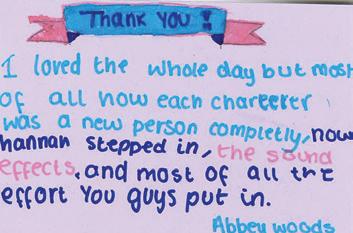 Thank you !!
I loved the whole day but most
of all how each charecter
was a new person completly, how
hannah stepped in, the sound
effects, and most of all the
effort You guys put in.
Abbey woods